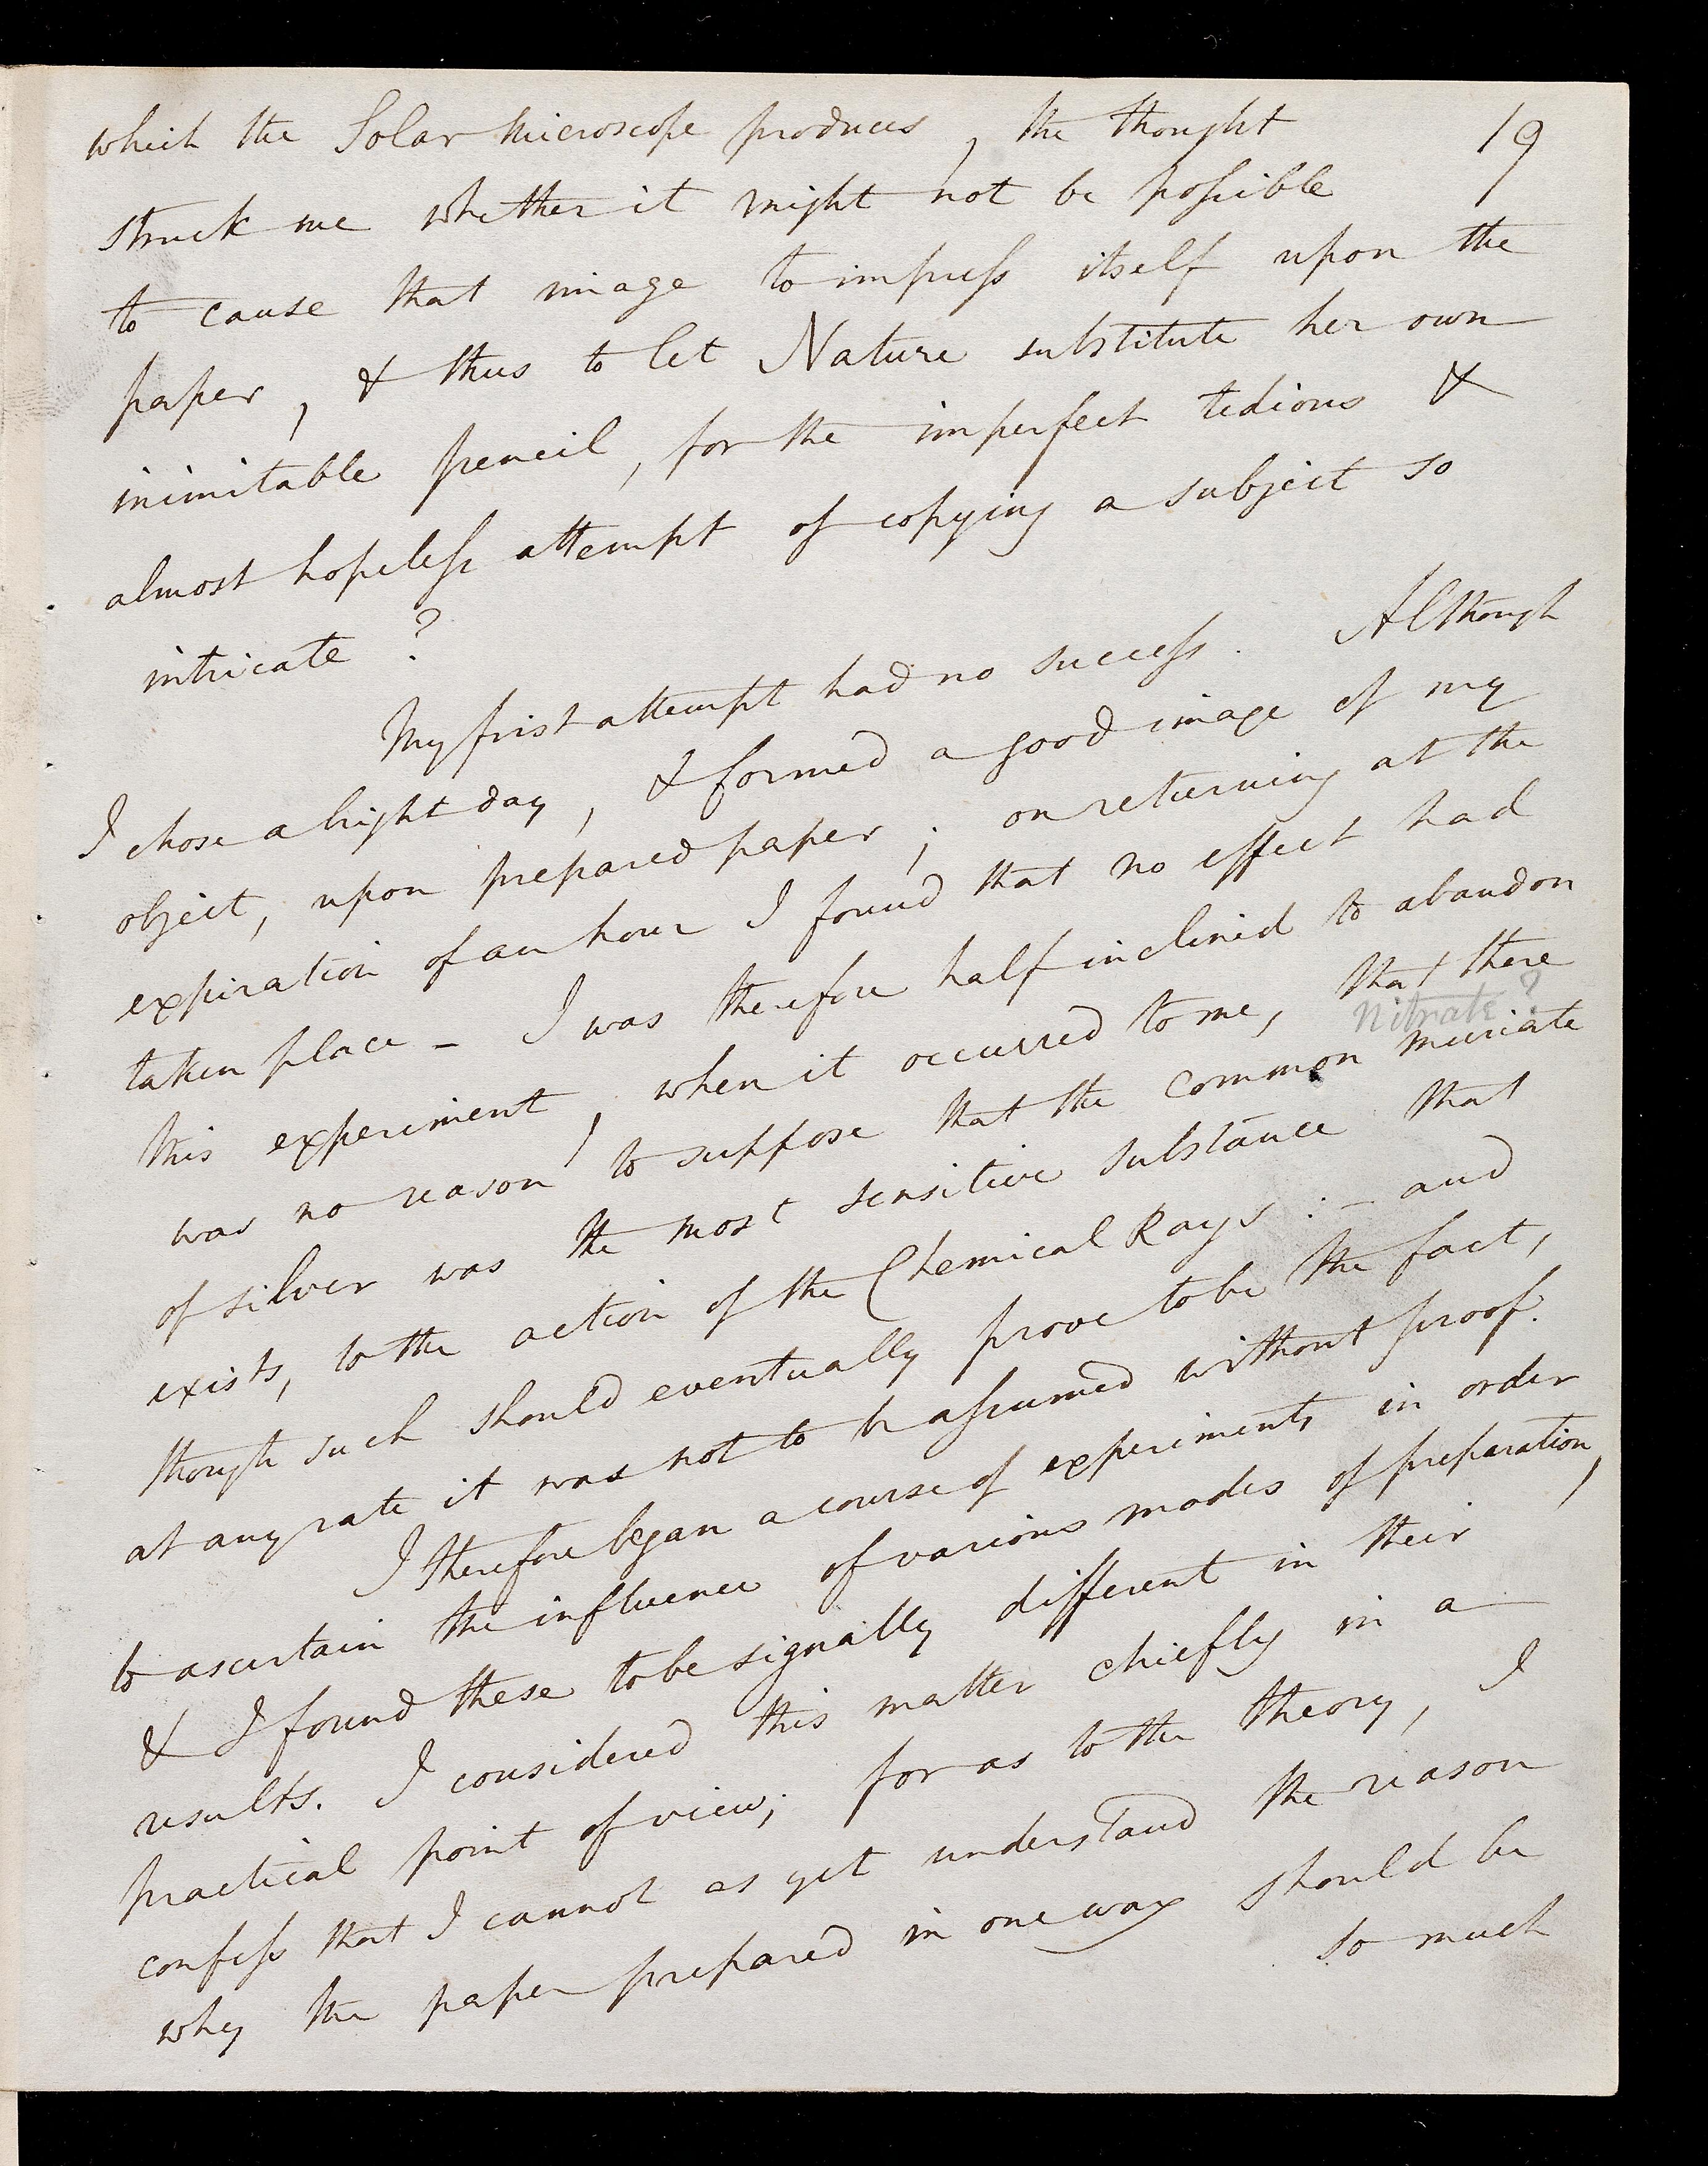 which the Solar Microscope produces, the thought 19
struck me whether it might not be poſsible
to cause that image to impreſs itself upon the
paper, & thus to let Nature substitute her own
inimitable pencil, for the imperfect tedious &
almost hopeleſs attempt of copying a subject so
intricate?
My first attempt had no succeſs. Although
I chose a bright day, & formed a good image of my
object, upon prepared paper; on returning at the
expiration of an hour I found that no effect had
taken place – I was therefore half inclined to abandon
this experiment, when it occurred to me, that there
Nitrate?
was no reason to suppose that the common muriate
of silver was the most sensitive substance that
exists, to the action of the Chemical Rays: – and
though such should eventually prove to be the fact,
at any rate it was not to be aſsumed without proof.
I therefore began a course of experiments in order
to ascertain the influence of various modes of preparation,
& I found these to be signally different in their
results. I considered this matter chiefly in a
practical point of view; for as to the theory, I
confeſs that I cannot as yet understand the reason
why the paper prepared in one way should be
so much